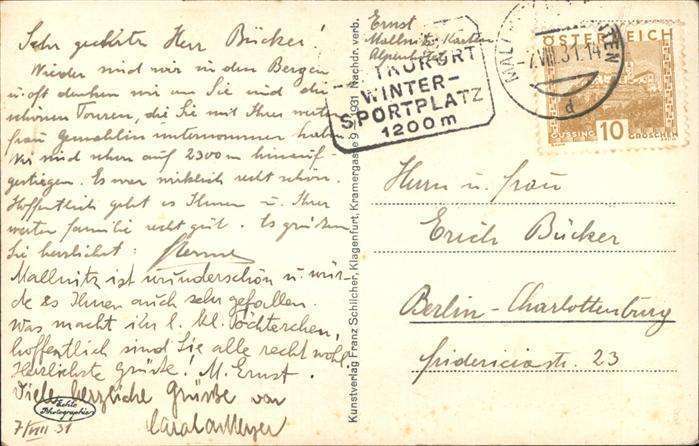 Sehr geehrter Herr Bücker!
Wieder sind wir in den Bergen
u. oft denken wir an Sie und die
schönen Touren, die Sie mit Ihrer werten
Frau Gemahlin unternommen haben.
Wir sind schon auf 2300 m hinauf-
gestiegen. Es war wirklich recht schön.
Hoffentlich geht es Ihnen u. Ihrer
werten Familie recht gut. Es grüßen
Sie herzlichst:
Mallnitz ist wunderschön u. wür-
de es Ihnen auch sehr gefallen.
Was macht ihr l. kl. Töchterchen,
hoffentlich sind Sie alle recht wohl.
Herzlichste Grüße! M. Ernst.
Viele herzliche Grüße von
Meyer
7/VIII 31
Echte
Photographie
Kunstverlag Franz Schilcher, Klagenfurt, Kramergasse 9 1931 Nachdr. verb.
Ernst
Mallnitz, Kärnten
KURORT
WINTER-
SPORTPLATZ
1200 m
7.VIII.31.14
d
ÖSTERREICH
GÜSSING 10 GROSCHEN
Herrn u. Frau
Erich Bücker
Berlin-Charlottenburg
Fridericiastr. 23